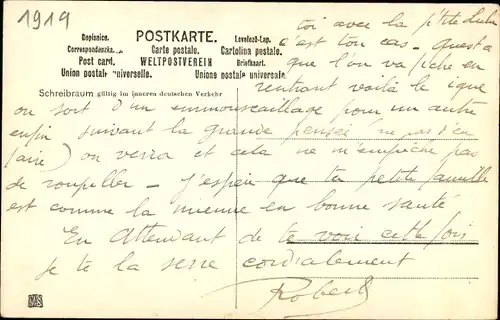 1919
Dopisnice.
POSTKARTE.
Levelező-Lap.
Correspondenzka.
Carte postale.
Cartolina postale.
Post card.
WELTPOSTVEREIN
Briefkaart.
Union postale universelle.
Unione postale universale
Schreibraum gültig im inneren deutschen Verkehr
toi avec la p'tite
c'est ton cas - Quest a
que l'on va fiche en
rentrant voilà le
on sort d'un emmouscaillage pour un autre
enfin suivant la grande pensée (ne pas s'en
faire) on verra et cela ne m'empêche pas
de roupiller - J'espère que ta petite famille
est comme la mienne en bonne santé
En attendant de te voir cette fois
je te la serre cordialement
Robert